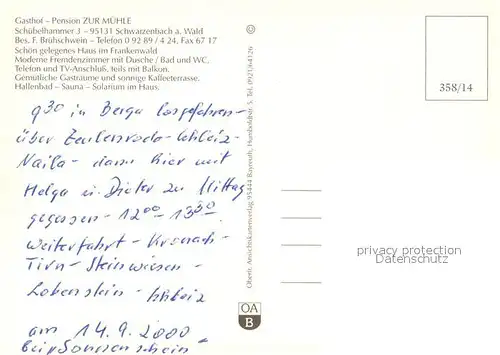 Gasthof – Pension ZUR MÜHLE
Schübelhammer 3 – 95131 Schwarzenbach a. Wald
Bes. F. Brühschwein – Telefon 0 92 89 / 4 24, Fax 67 17
Schön gelegenes Haus im Frankenwald
Moderne Fremdenzimmer mit Dusche / Bad und WC,
Telefon und TV-Anschluß, teils mit Balkon.
Gemütliche Gasträume und sonnige Kaffeeterrasse.
Hallenbad – Sauna – Solarium im Haus.
9³⁰ in Berga losgefahren –
über Zeulenroda – Schleiz –
Naila – dann hier mit
Helga u. Dieter zu Mittag
gegessen – 12⁰⁰ – 13³⁰
Weiterfahrt – Kronach –
– Steinwiesen –
Lobenstein – Schleiz
am 14.9.2000
bei Sonnenschein
©
Oberfr. Ansichtskartenverlag 95444 Bayreuth, Humboldtstr. 5, Tel. (0921)64126
OA
B
358/14
privacy protection
Datenschutz